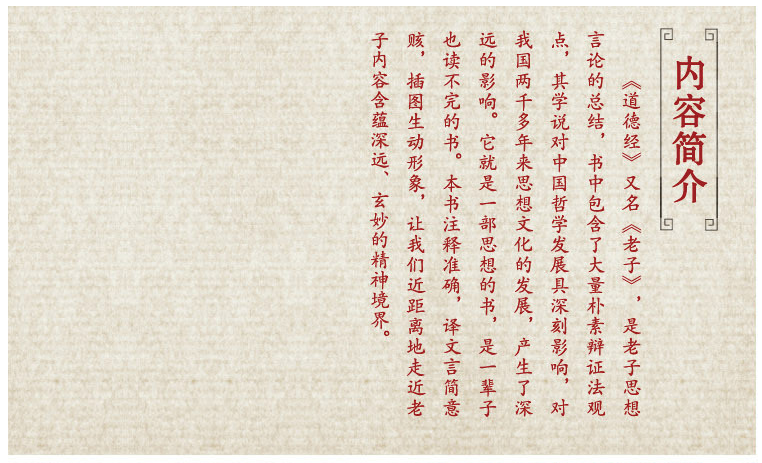 内容简介
《道德经》又名《老子》，是老子思想
言论的总结，书中包含了大量朴素辩证法观
点，其学说对中国哲学发展具深刻影响，对
我国两千多年来思想文化的发展，产生了深
远的影响。它就是一部思想的书，是一辈子
也读不完的书。本书注释准确，译文言简意
赅，插图生动形象，让我们近距离地走近老
子内容含蕴深远、玄妙的精神境界。